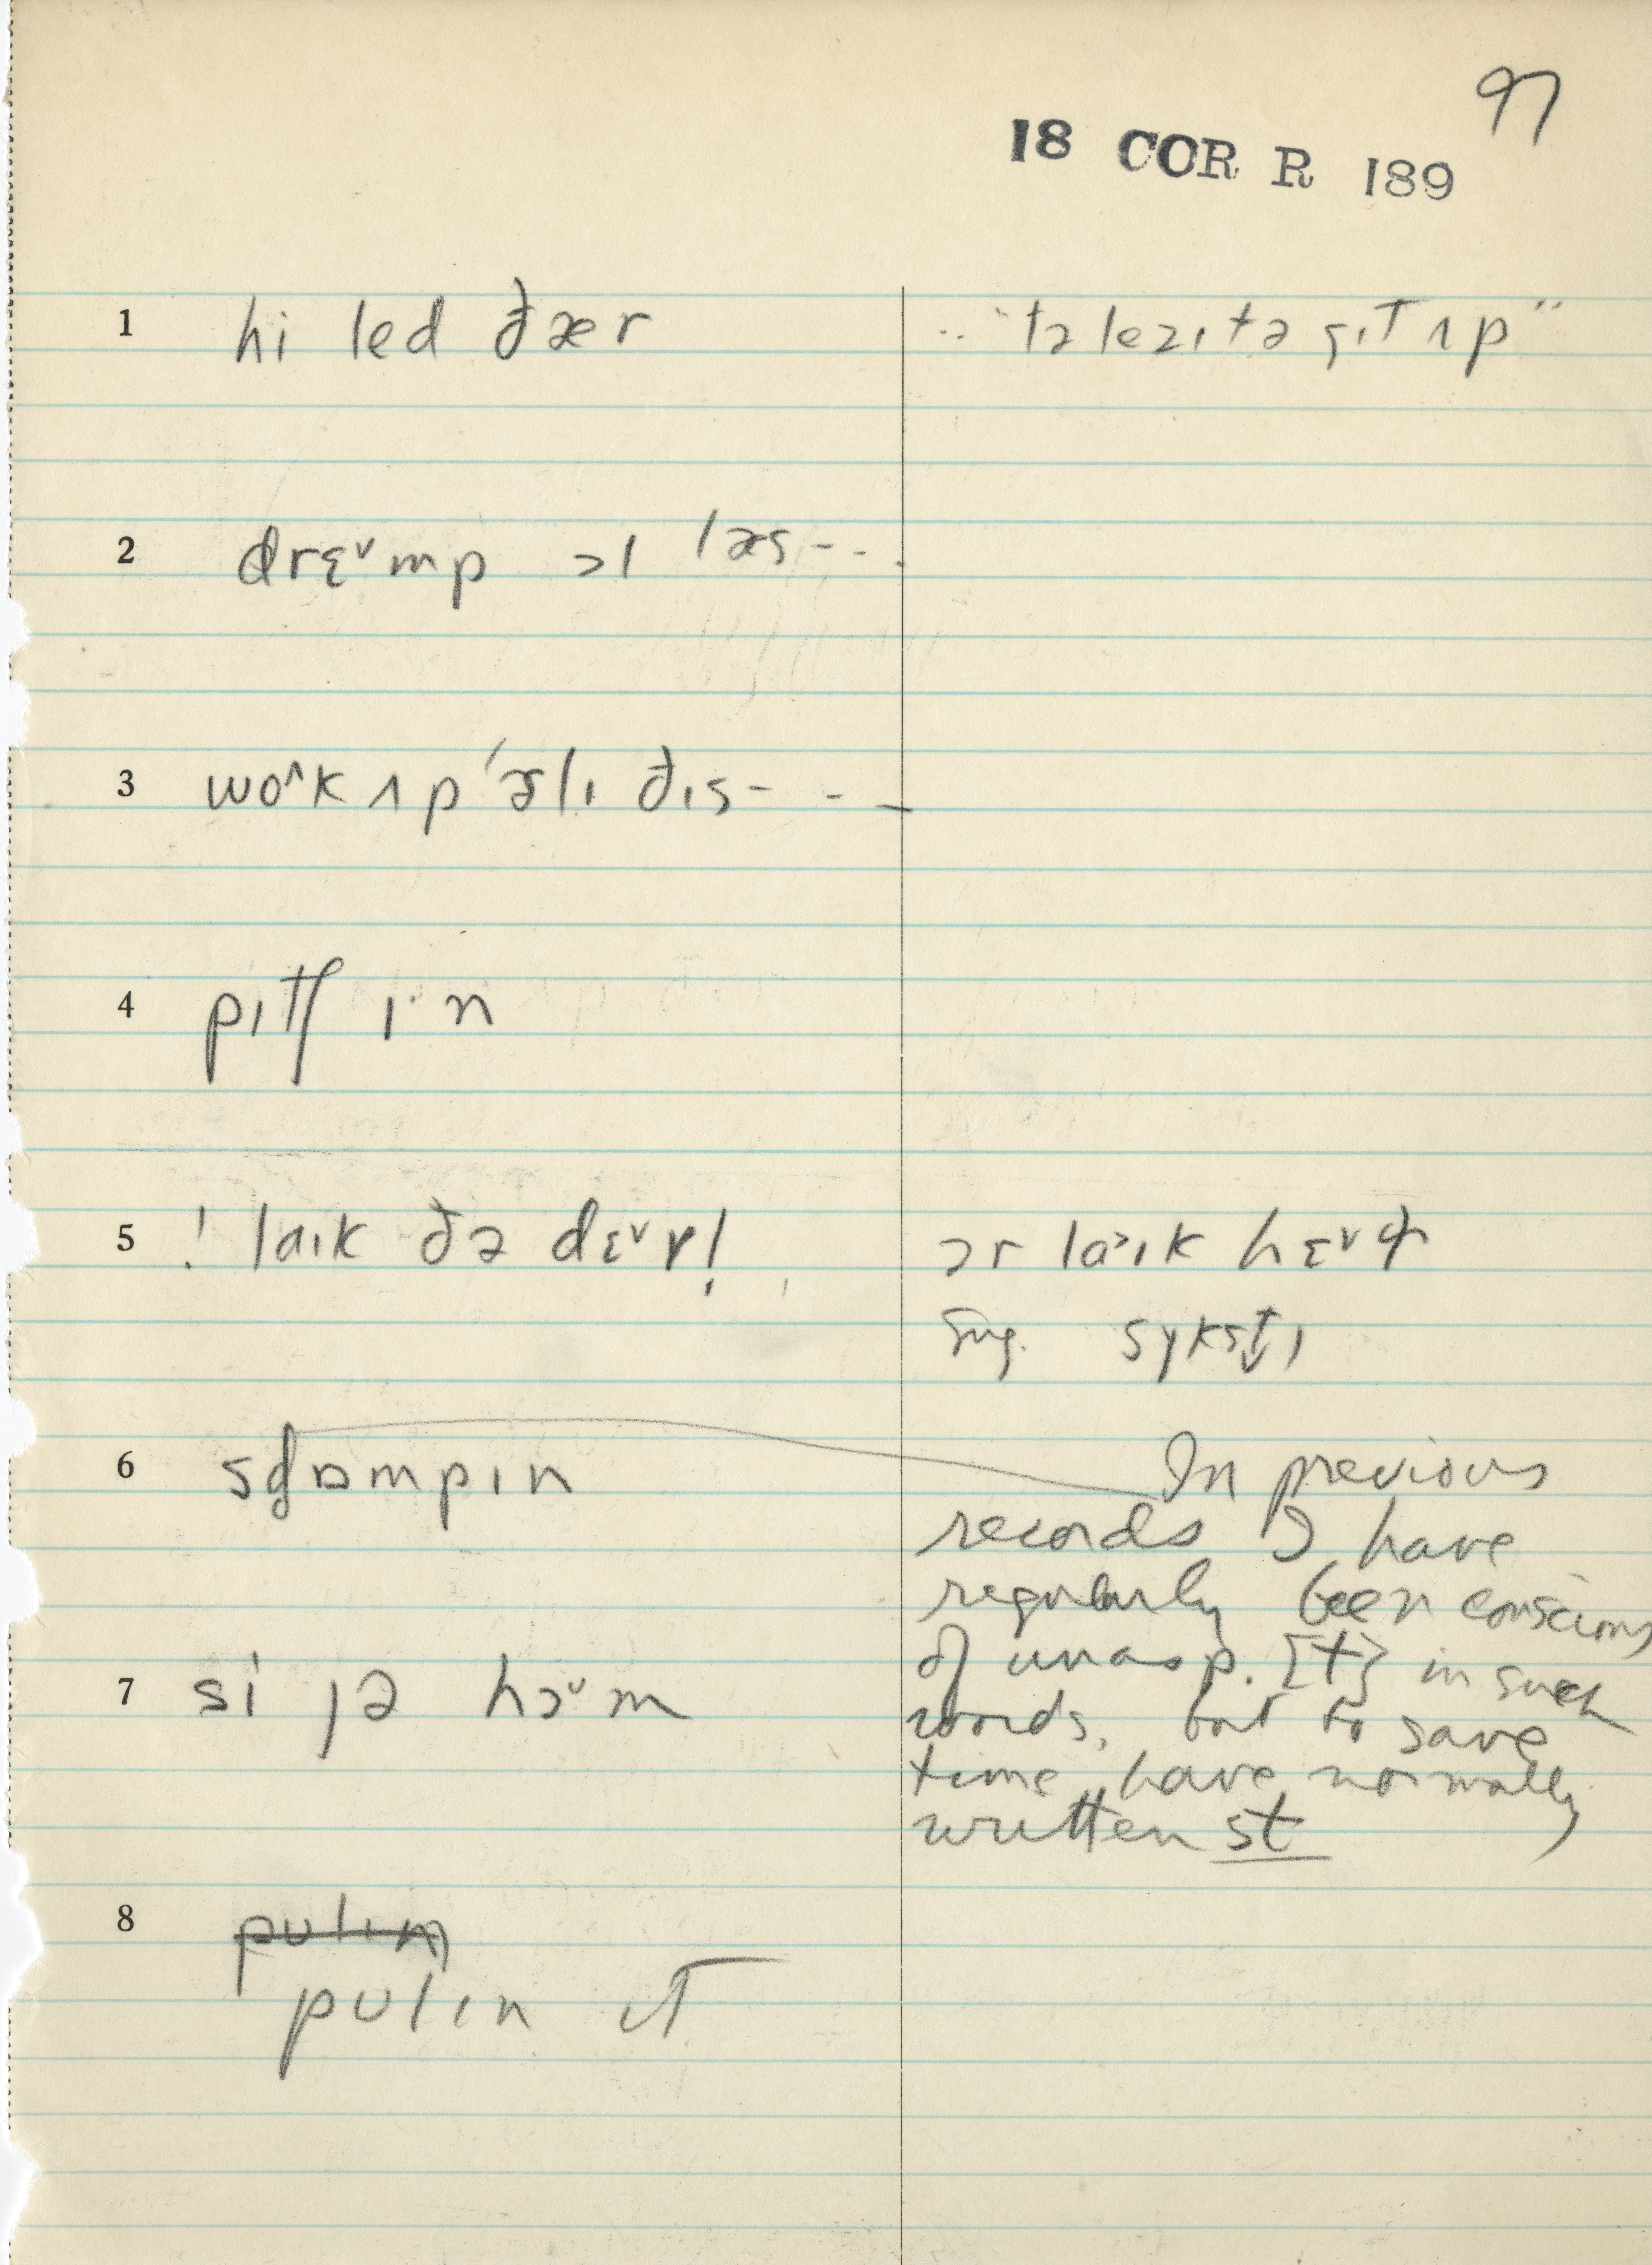 97
18 COR R 189
1 hi led ðær
.. "tə lezɪ tə gɪt ʌp"
2 drɛ˅mp ɔl læs - - .
3 wo˄k ʌp ˈɚlɪ ðɪs - - -
4 pɪtʃ ɪ·n
5 ! laɪk ðə dɛ˅r!
ɔr laɪk hɛ˅
sɪkstɪ
6 std̥ɒmpɪn
In previous
records I have
regularly been conscious
of unasp. [t] in such
words, but to save
time, have normally
written st
7 si jə hɔ˅m
8 pulɪn
pulɪn ɪt